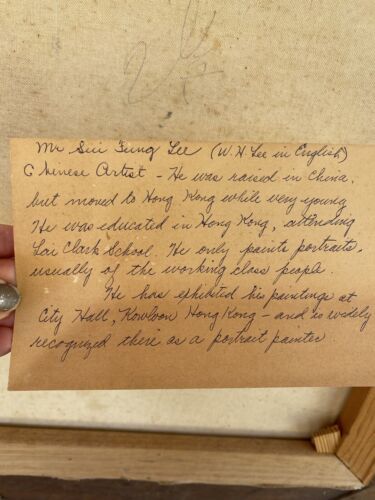 Mr Sui Fung Lee (W.H. Lee in English)
Chinese Artist - He was raised in China,
but moved to Hong Kong while very young
He was educated in Hong Kong, attending
Lai Clark School. He only paints portraits,
usually of the working class people.
He has exhibited his paintings at
City Hall, Kowloon Hong Kong - and is widely
recognized there as a portrait painter